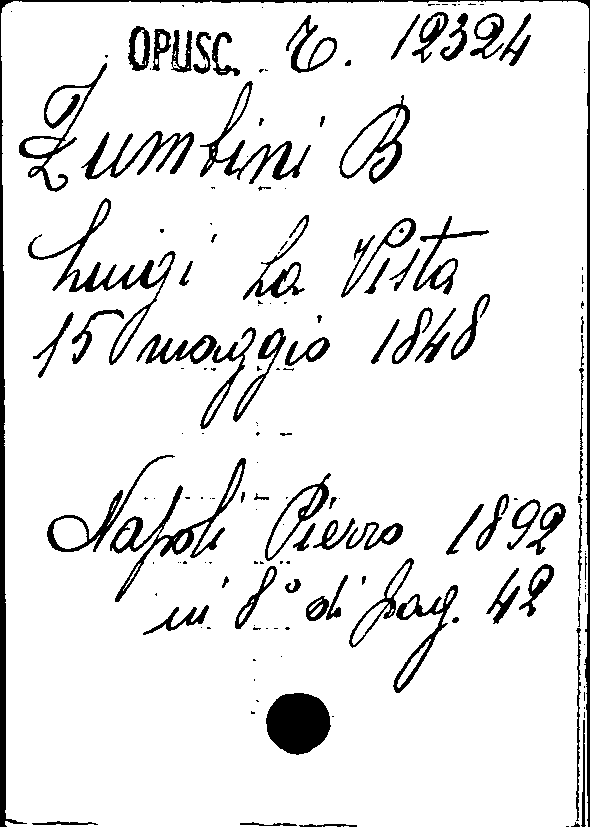 OPUSC. T. 12324
Zumbini B
Luigi La Vista
15 maggio 1848
Napoli Pierro 1892
in 8° di pag. 42